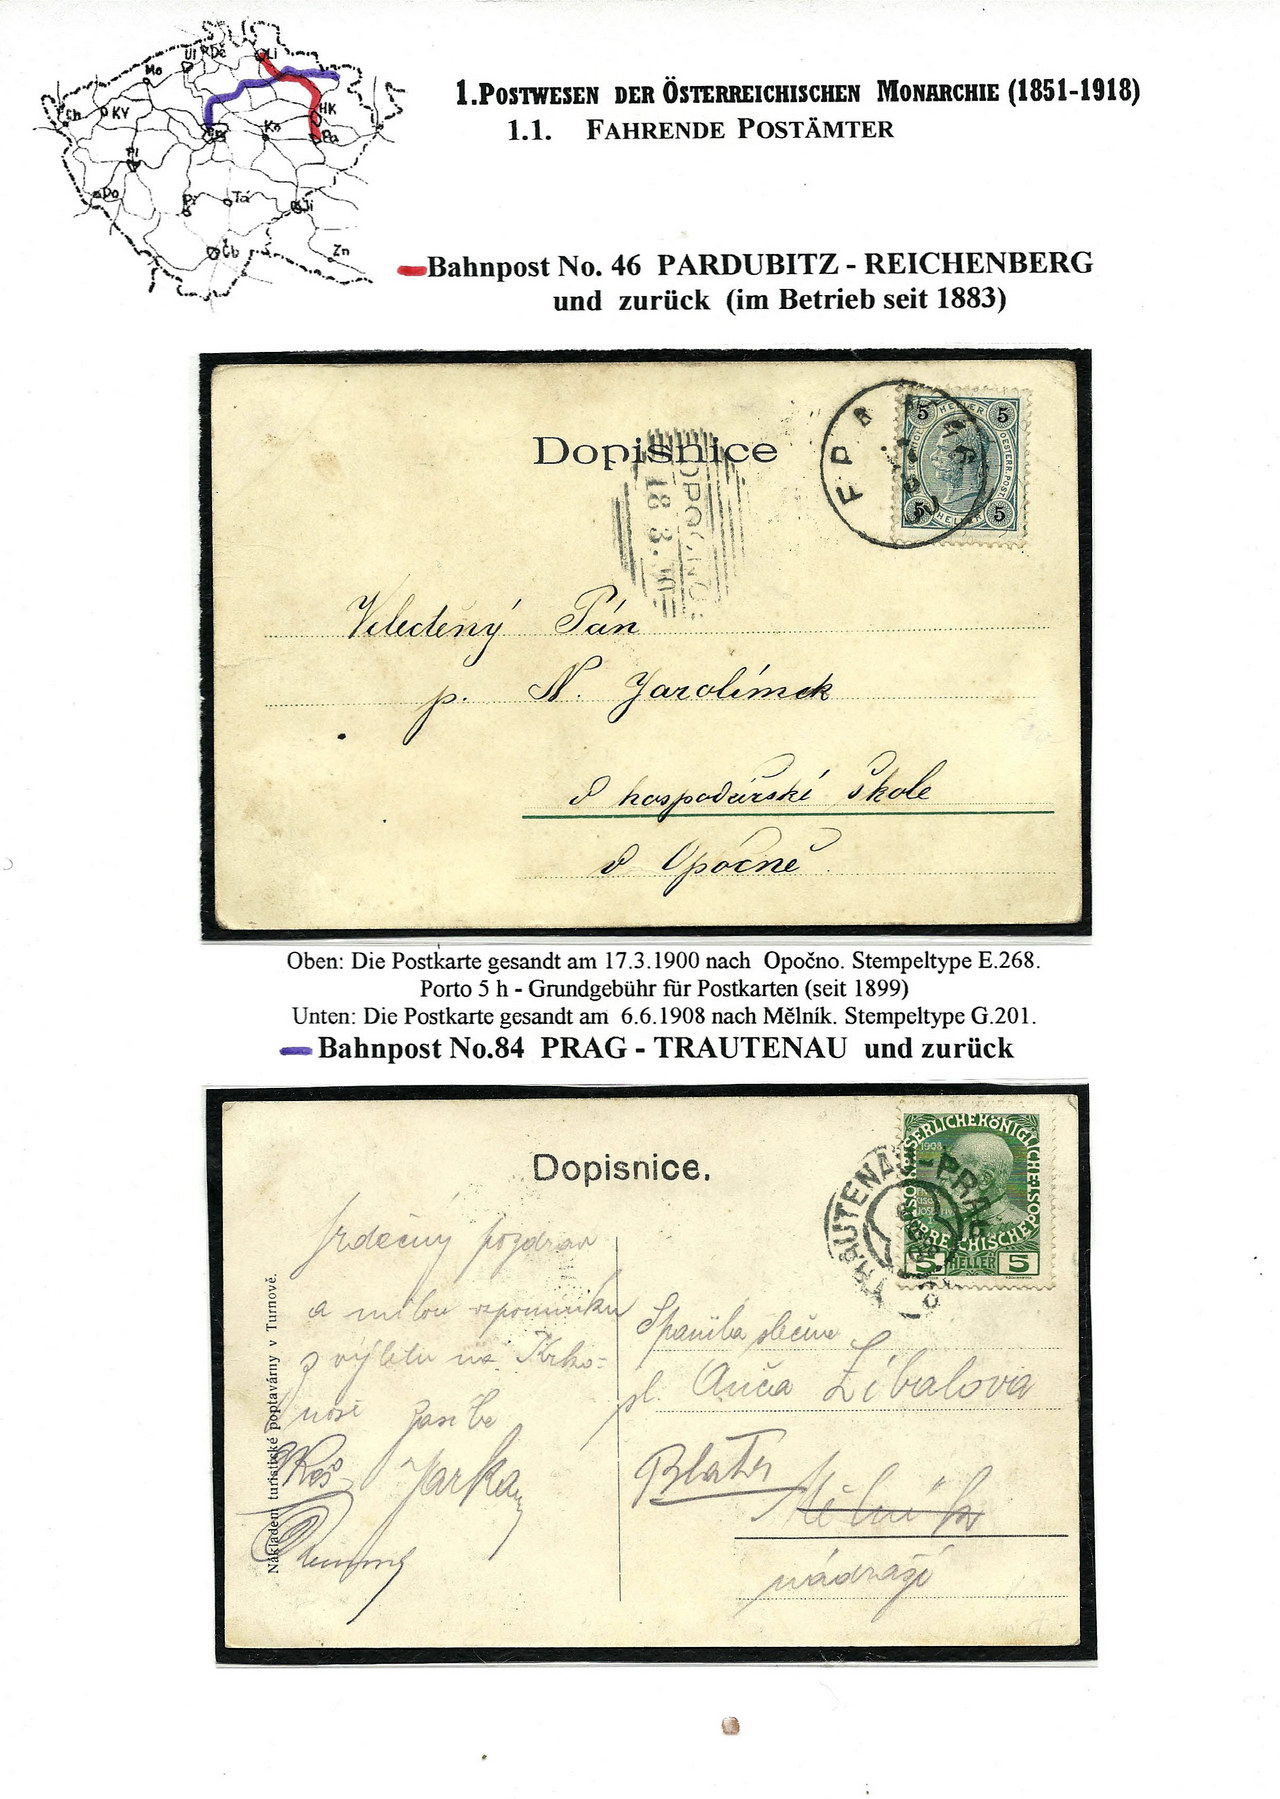 Ul
Dě
Li
Mo
KV
Ch
HK
Pa
Ko
Pr
Pl
Do
Pí
Tá
Ji
Čb
Zn
1.POSTWESEN DER ÖSTERREICHISCHEN MONARCHIE (1851-1918)
1.1. FAHRENDE POSTÄMTER
Bahnpost No. 46 PARDUBITZ - REICHENBERG
und zurück (im Betrieb seit 1883)
Dopisnice
5 HELLER 5
5 HELLER 5
OPOČNO
18 3.
Veleděný Pán
p. N. Jarolímek
v hospodářské škole
v Opočně.
Oben: Die Postkarte gesandt am 17.3.1900 nach Opočno. Stempeltype E.268.
Porto 5 h - Grundgebühr für Postkarten (seit 1899)
Unten: Die Postkarte gesandt am 6.6.1908 nach Mělník. Stempeltype G.201.
Bahnpost No.84 PRAG - TRAUTENAU und zurück
Dopisnice.
TRAUTENAU-PRAG
1908
5 HELLER 5
Srdečný pozdrav
a milou vzpomínku
z výletu na Krko=
noše
Jarka
Nákladem turistické poptavárny v Turnově.
slečna
sl. Anča Zíbalova
Mělník
nádraží